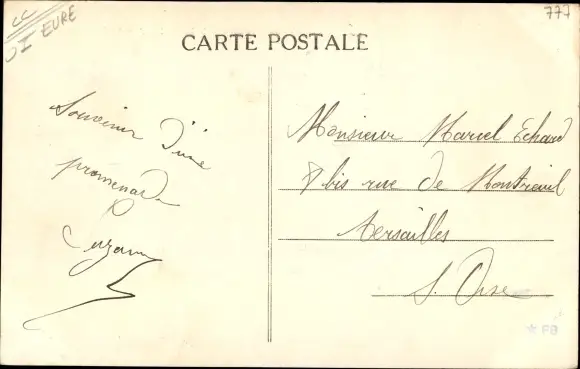 CC
EURE
777
CARTE POSTALE
Souvenir d'une
promenade
Suzanne
Monsieur Marcel Echard
8 bis rue de Montreuil
Versailles
S. Oise
* FB